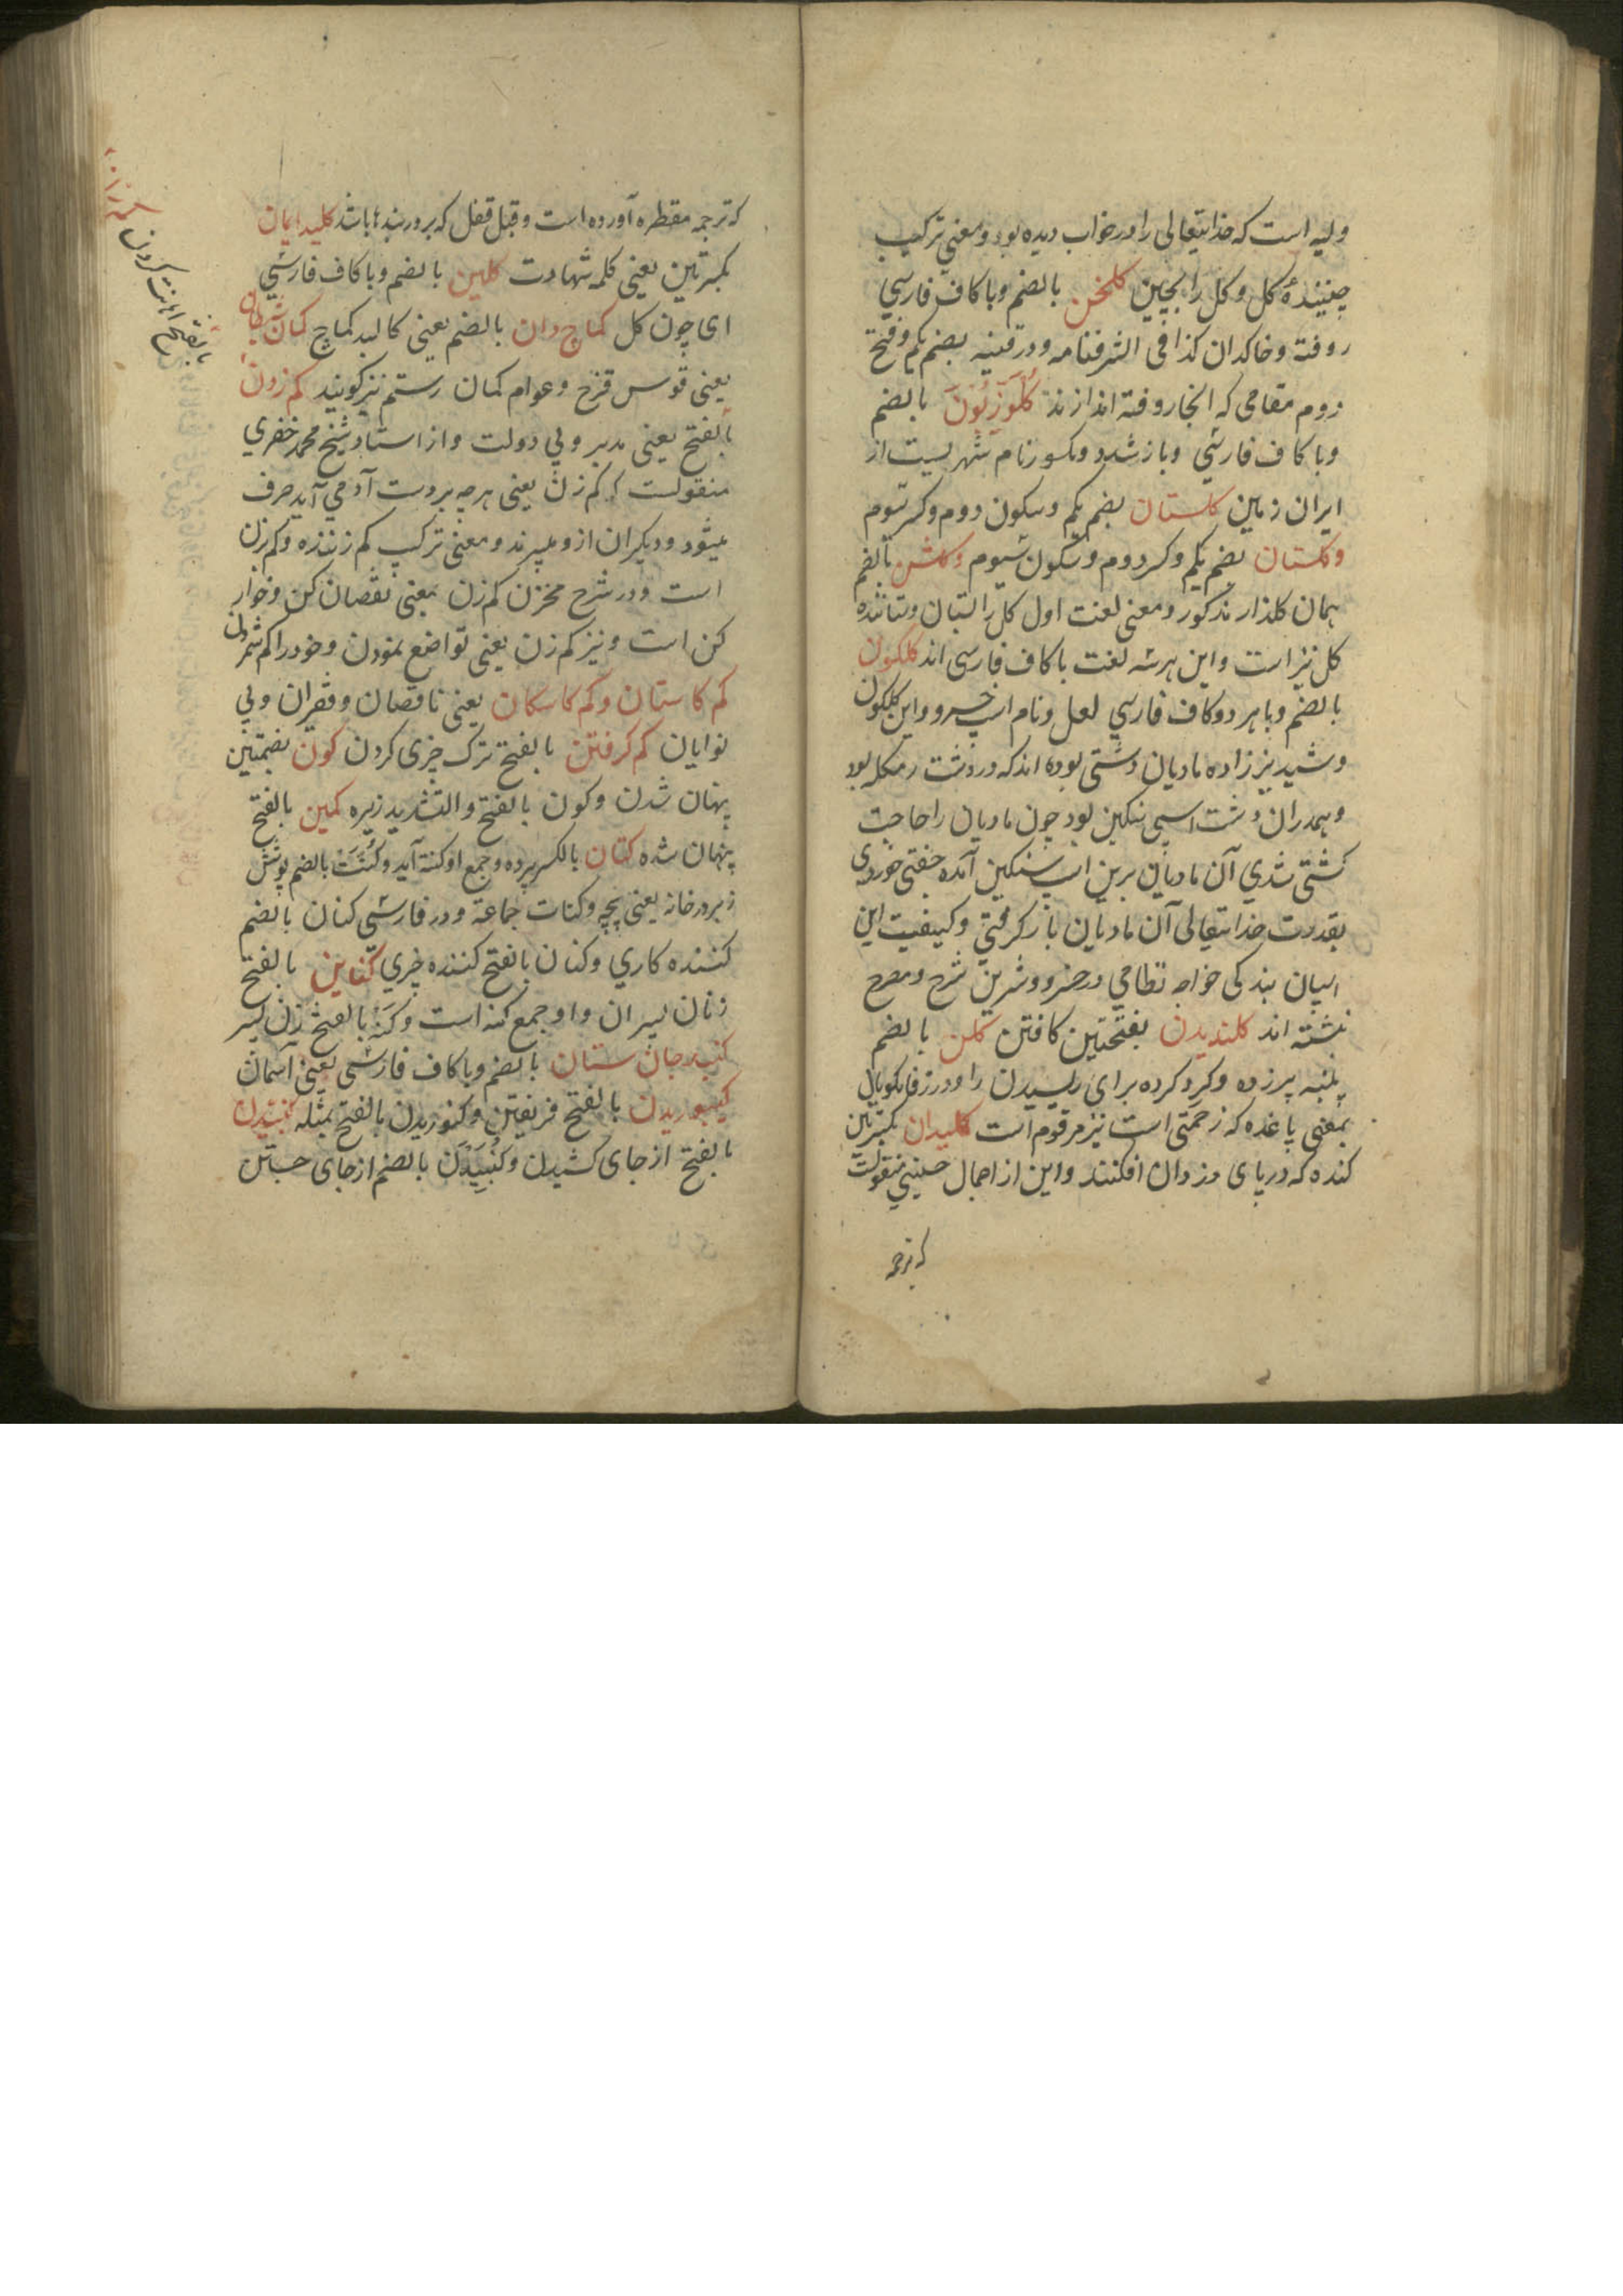 ولیه است که خدایتعالی را در خواب دیده بود و معنی ترکیب
چینندهٔ کل و کل را بچین کلخن بالضم و با کاف فارسی
روفته و خاکدان کذا فی الشرفنامه و در قنیه بضم یکم و فتح
دوم مقامی که انجا روفته اندازند کلوزیون بالضم
و با کاف فارسی و با زشدد و مکسور نام شهریست از
ایران زمین کلستان بضم یکم و سکون دوم و کسر سوم
و کلستان بضم یکم و کسر دوم و سکون سیوم و کلشن بالضم
همان کلذار مذکور و معنی لغت اول کل را ستان و ستاننده
کل نیز است و این هرسه لغت با کاف فارسی اند کلکون
بالضم و با هر دو کاف فارسی لعل و نام اسپ خسرو و این کلکون
و شبدیز زاده مادیان دشتی بوده اند که در دشت رمکله بود
و همدران دشت اسپی سنکین بود چون مادیان را حاجت
کشتی شدی آن مادیان برین اسپ سنکین آمده جفتی خوردی
بقدرت خدایتعالی آن مادیان بار کرفتی و کیفیت این
البیان بندکی خواجه نظامی در خسرو و شیرین شرح و مصرح
نبشته اند کلندیدن بفتحتین کافتن کلن بالضم
پنبه پر زده و کرد کرده برای ریسیدن را و در زفانکویا
بمعنی پاغنده که زحمتی است نیز مرقوم است کلیدان بکسرتین
کنده که در پای دزدان افکنند و این از اجمال حسینی منقولست
که ترجمه
که ترجمه مقطره آورده است و قبل قفل که بر در بندها باشد کلید ایمان
بکسرتین یعنی کلمه شهادت کلین بالضم و با کاف فارسی
ای چون کل کماج دان بالضم یعنی کالبد کماج کمان شیطان
یعنی قوس قزح و عوام کمان رستم نیز کویند کم زدن
بالفتح یعنی مدبر و بی دولت و از استاد شیخ محمد خضری
منقولست که کم زن یعنی هرچه بر دست آدمی آید صرف
میشود و دیکران ازو میبرند و معنی ترکیب کم زننده و کم بزن
است و در شرح مخزن کم زن بمعنی نقصان کن و خوار
کن است و نیز کم زن یعنی تواضع نمودن و خود را کم شمردن
کم کاستان و کم کاسکان یعنی ناقصان و فقیران و بی
نوایان کم کرفتن بالفتح ترک چیزی کردن کمون بضمتین
پنهان شدن و کمون بالفتح و التشدید زیره کمین بالفتح
پنهان شده کنان بالکسر پرده و جمع او کنة آید و کُنَّت بالضم پوشش
زبر در خانه یعنی چچه و کنات جماعة و در فارسی کنان بالضم
کننده کاری و کنان بالفتح کننده چیزی کناین بالفتح
زنان پسران و او جمع کنه است و کَنَّهْ بالفتح زن پسر
کنبد جان ستان بالضم و با کاف فارسی یعنی آسمان
کنبوریدن بالفتح فریفتن و کنوریدن بالفتح بمثله کنبیدن
بالفتح از جای کشیدن و کُنبیدَن بالضم از جای جستن
کم زدن
بالفتح اهانت کردن